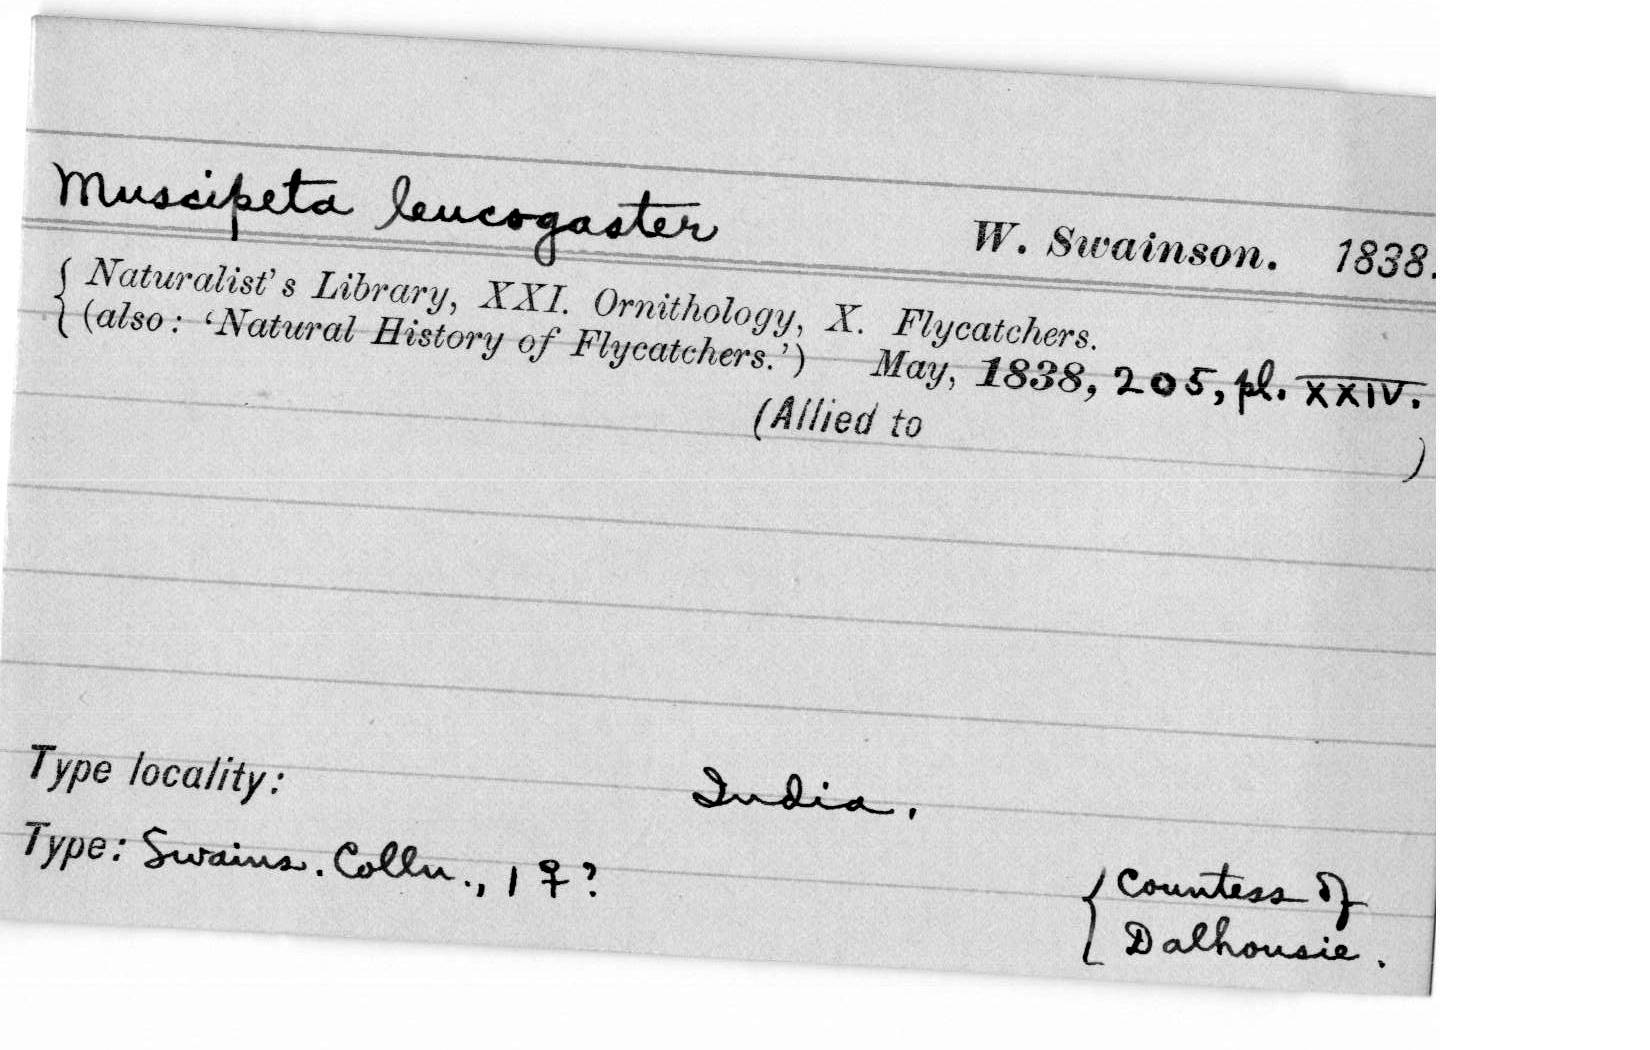 Muscipeta leucogaster W. Swainson. 1838.
{ Naturalist's Library, XXI. Ornithology, X. Flycatchers.
(also: 'Natural History of Flycatchers.') May, 1838, 205, pl. XXIV.
(Allied to )
Type locality: India.
Type: Swains. Colln., 1 ♀? { Countess of
Dalhousie.